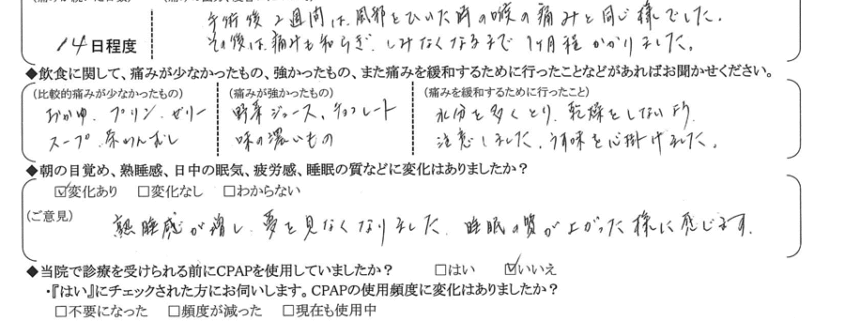 手術後2週間は、風邪をひいた時の喉の痛みと同じ様でした。
14日程度
その後は、痛みも和らぎ、しみなくなるまで1ヶ月程かかりました。
◆飲食に関して、痛みが少なかったもの、強かったもの、また痛みを緩和するために行ったことなどがあればお聞かせください。
(比較的痛みが少なかったもの) (痛みが強かったもの) (痛みを緩和するために行ったこと)
おかゆ、プリン、ゼリー 野菜ジュース、チョコレート 水分を多くとり、乾燥をしないよう
スープ、茶わんむし 味の濃いもの 注意しました。うす味を心掛けました。
◆朝の目覚め、熟睡感、日中の眠気、疲労感、睡眠の質などに変化はありましたか?
☑変化あり □変化なし □わからない
(ご意見)
熟睡感が増し、夢を見なくなりました。睡眠の質が上がった様に感じます。
◆当院で診療を受けられる前にCPAPを使用していましたか? □はい ☑いいえ
・『はい』にチェックされた方にお伺いします。CPAPの使用頻度に変化はありましたか?
□不要になった □頻度が減った □現在も使用中